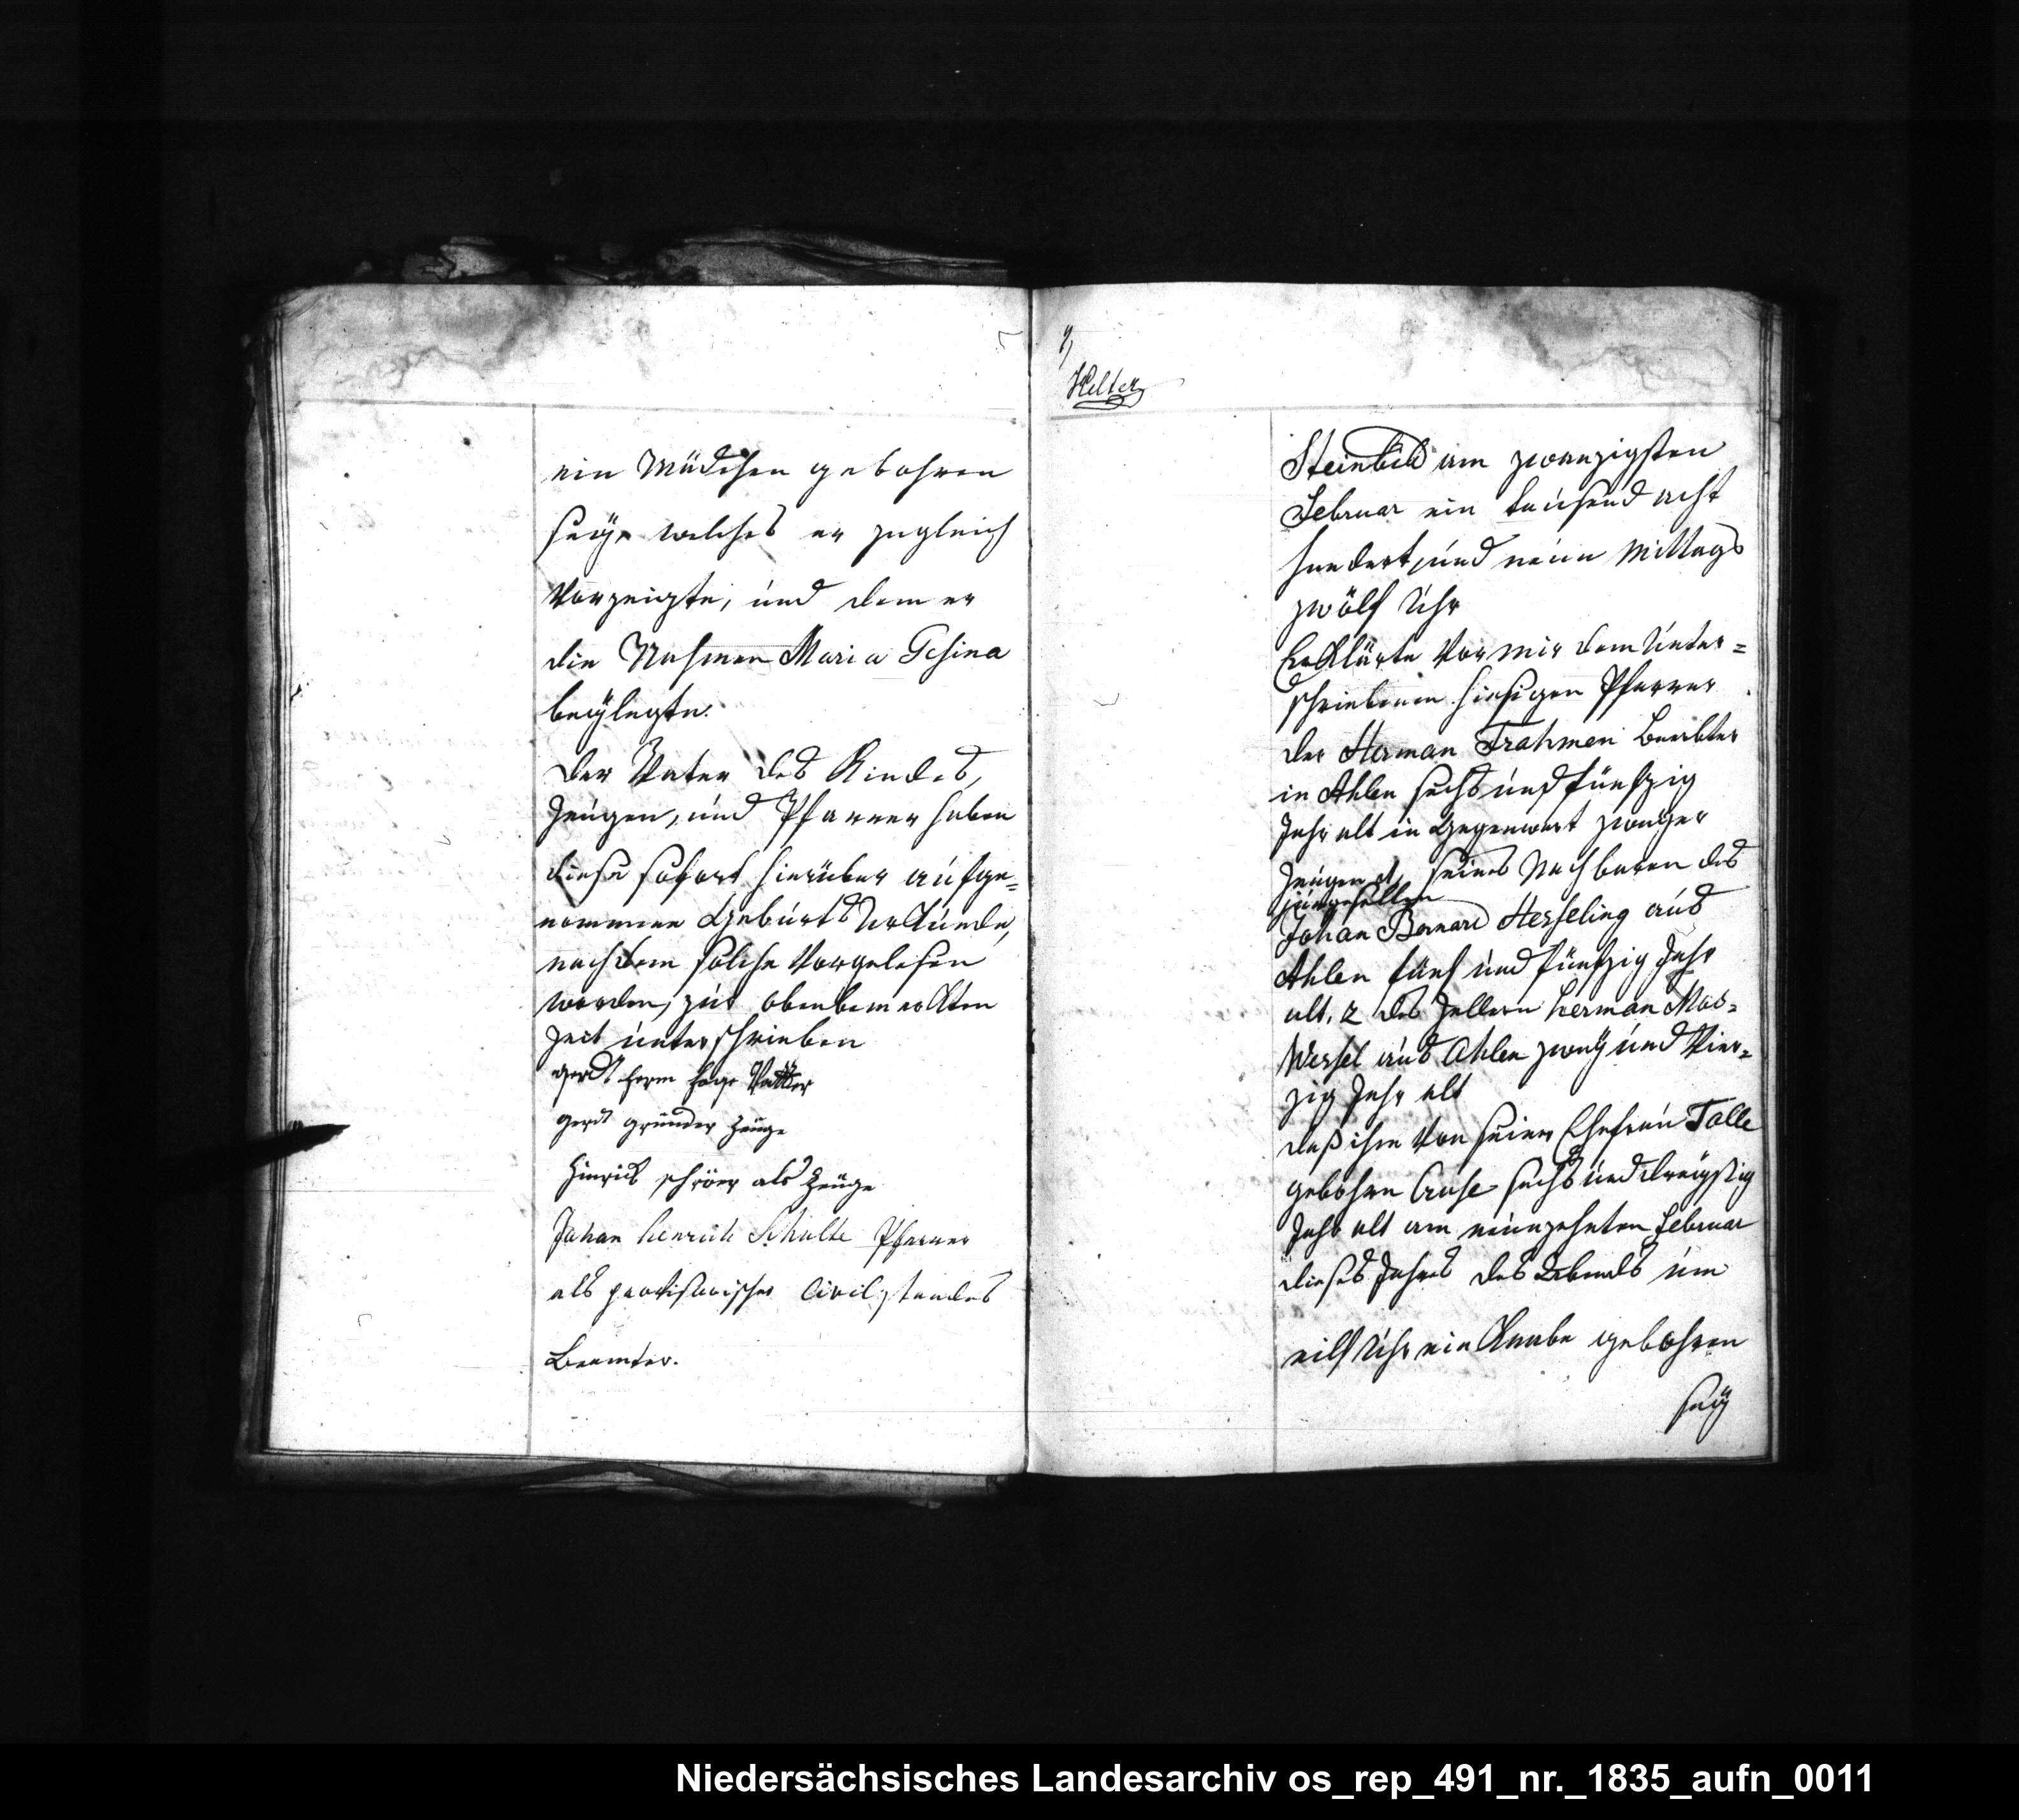 ein Mädchen gebohren
seÿe welches er zugleich
Vorzeigte, und dem er
die Nahmen Maria Gesina
beÿlegte.
Der Vater des Kindes,
Zeugen, und Pfarrer haben
diese sofort hierüber aufge=
nommene Geburts Urkunde,
nachdem solche Vorgelesen
worden, zur obenbemerkten
Zeit unterschrieben
gerdt herm Vatter
gerdt gründer Zeuge
Hinrich schröer als Zeuge
Johan henrich Schulte Pfarrer
als provisorischer Civilstandes
Beamter.
Helter
Steinbild am zwanzigsten
Februar ein tausend acht
hundert, und neun Mittags
zwölf Uhr
Erklärte Vor mir dem Unter=
schriebenen hiesigen Pfarrer
der Herman Trahmen
in Ahlen sechs und fünfzig
Jahr alt in Gegenwart zweÿer
Zeugen 1, seines Nachbaren des
junggesellen
Johan Bernard Hesseling aus
Ahlen fünf und fünfzig Jahr
alt, 2 des Zellern herman Mös=
Wessel aus Ahlen zweÿ und Vier=
zig Jahr alt
daß ihm Von seiner Ehefrau Talle
gebohrn Cruse sechs und dreÿßig
Jahr alt am neunzehnten Februar
dieses Jahres des Abends um
eilf Uhr ein Knabe gebohren
seÿ
Niedersächsisches Landesarchiv os_rep_491_nr._1835_aufn_0011